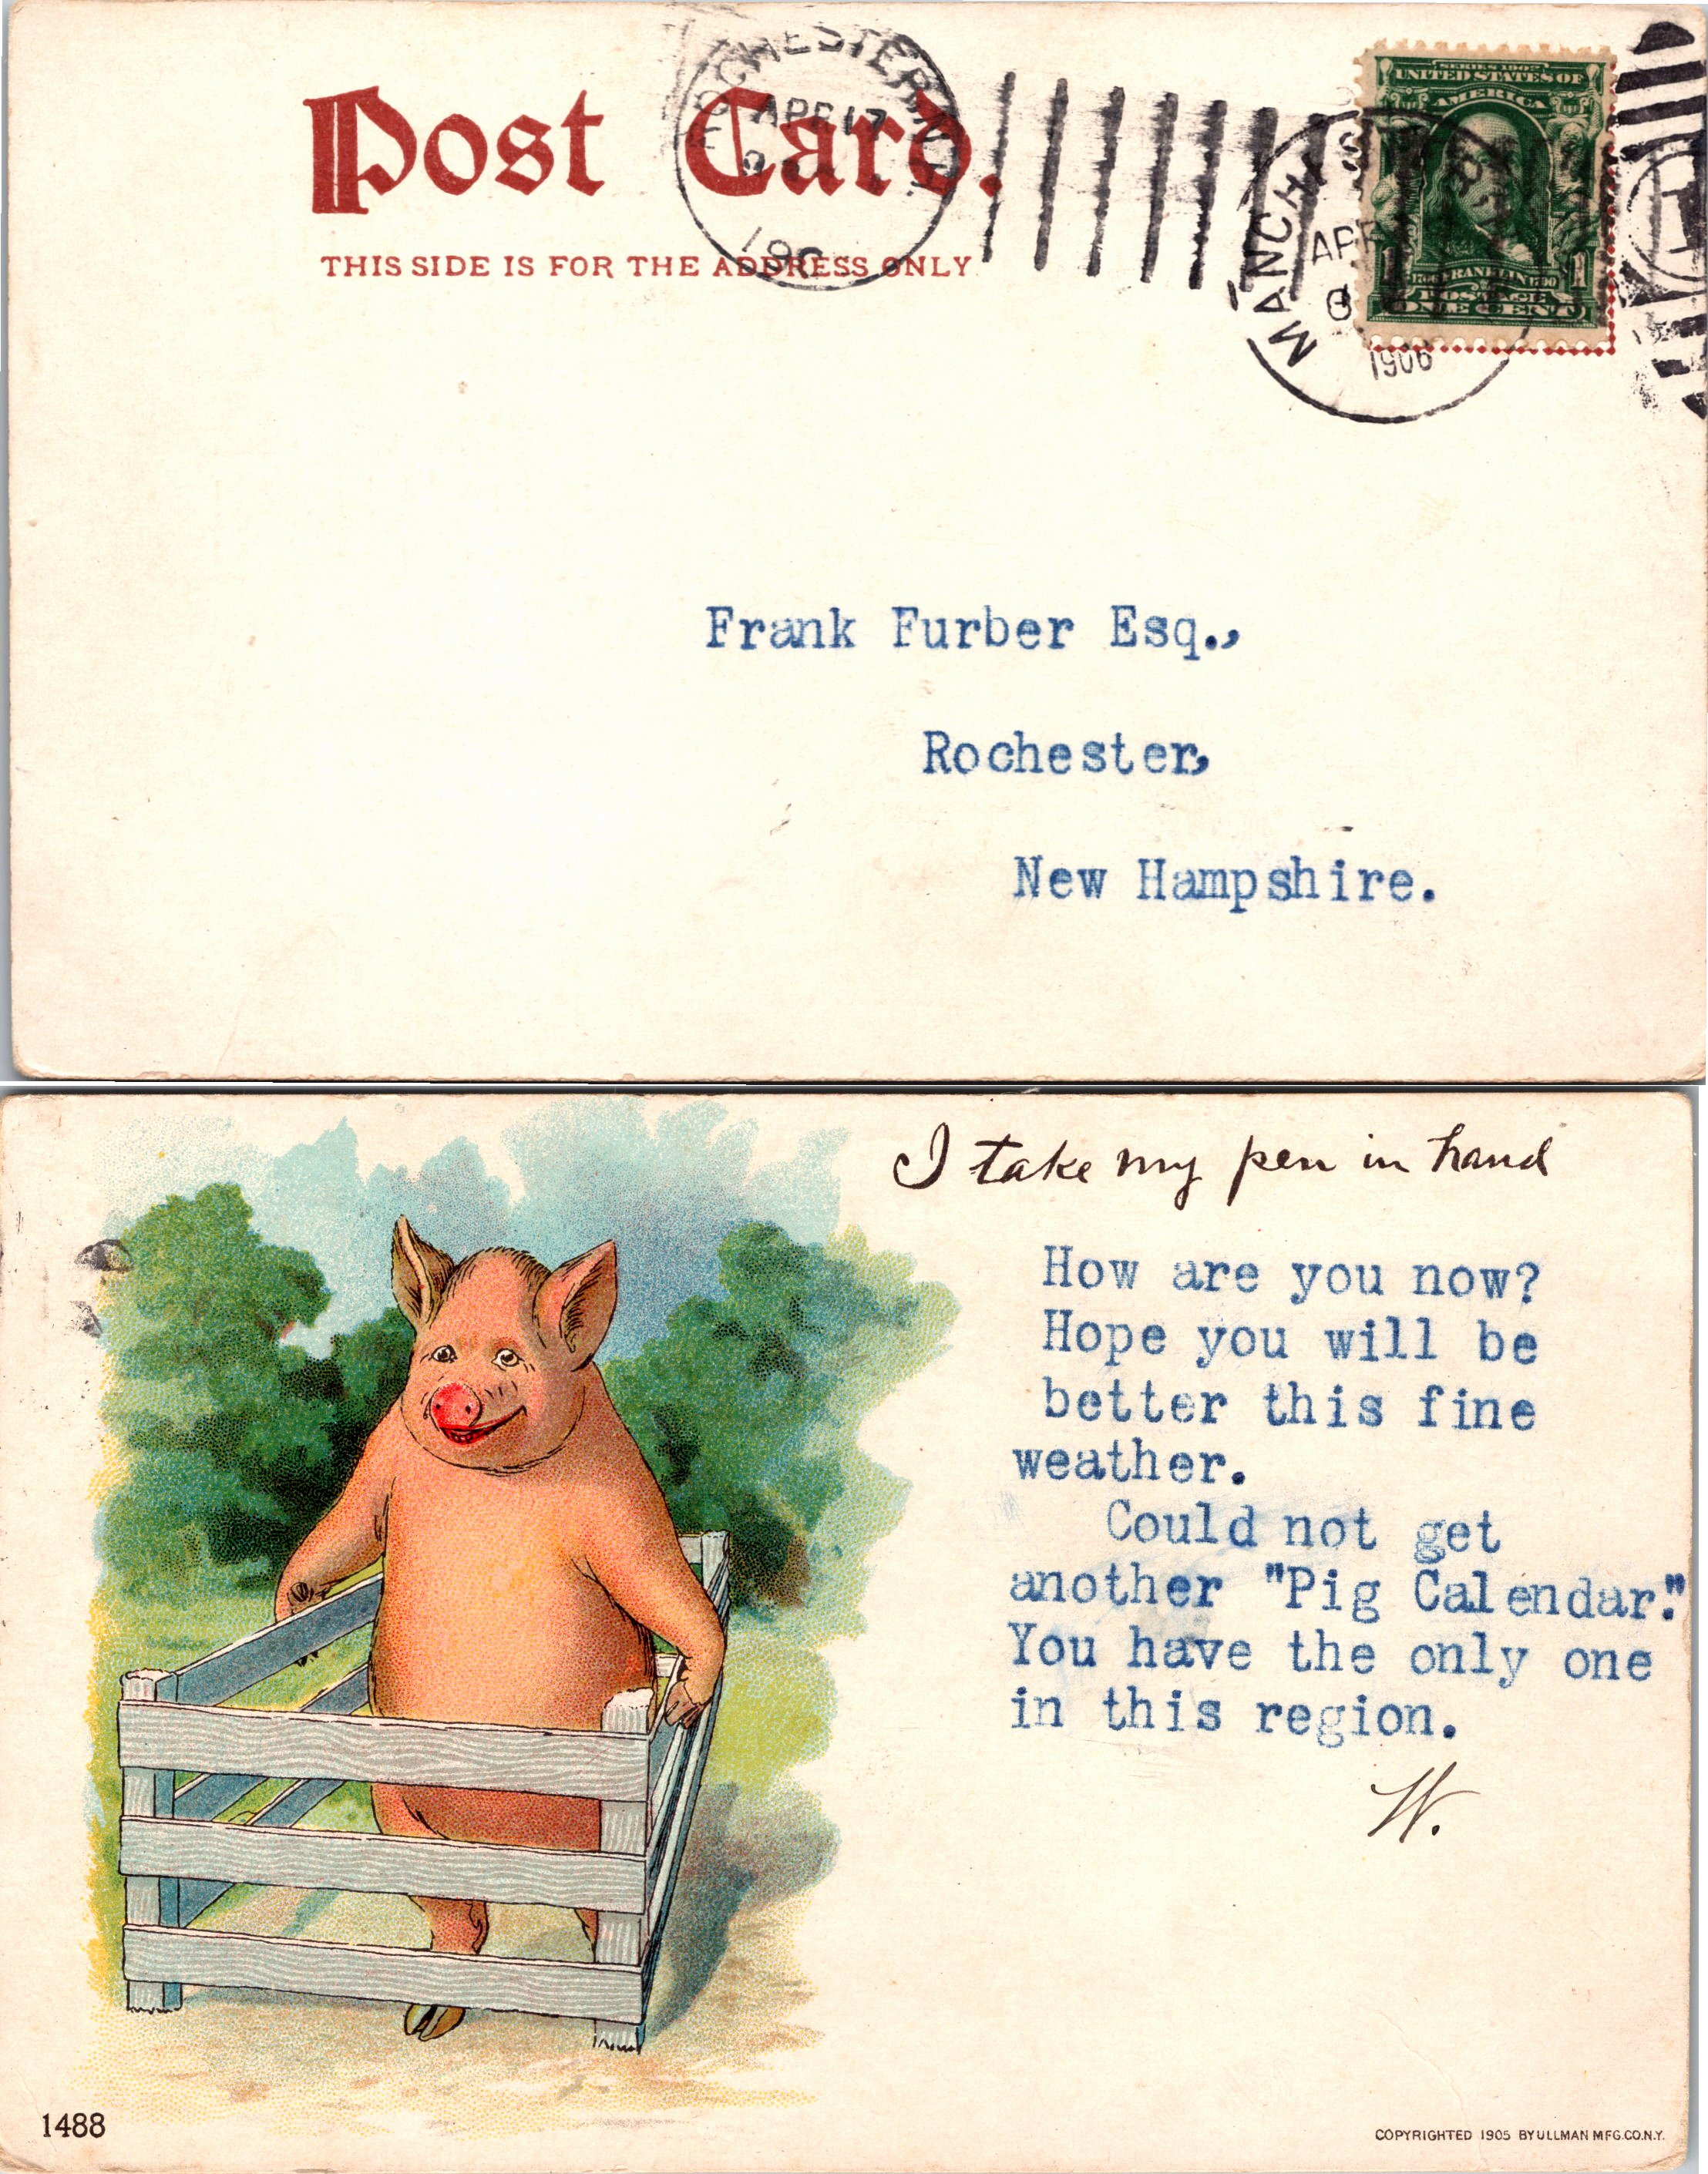 Post Card.
THIS SIDE IS FOR THE ADDRESS ONLY
ROCHESTER
APR 17
190
MANCHESTER
APR
1906
SERIES 1902
UNITED STATES OF
AMERICA
FRANKLIN
POSTAGE
ONE CENT
Frank Furber Esq.,
Rochester,
New Hampshire.
I take my pen in hand
How are you now?
Hope you will be
better this fine
weather.
Could not get
another "Pig Calendar."
You have the only one
in this region.
W.
1488
COPYRIGHTED 1905 BY ULLMAN MFG.CO.N.Y.